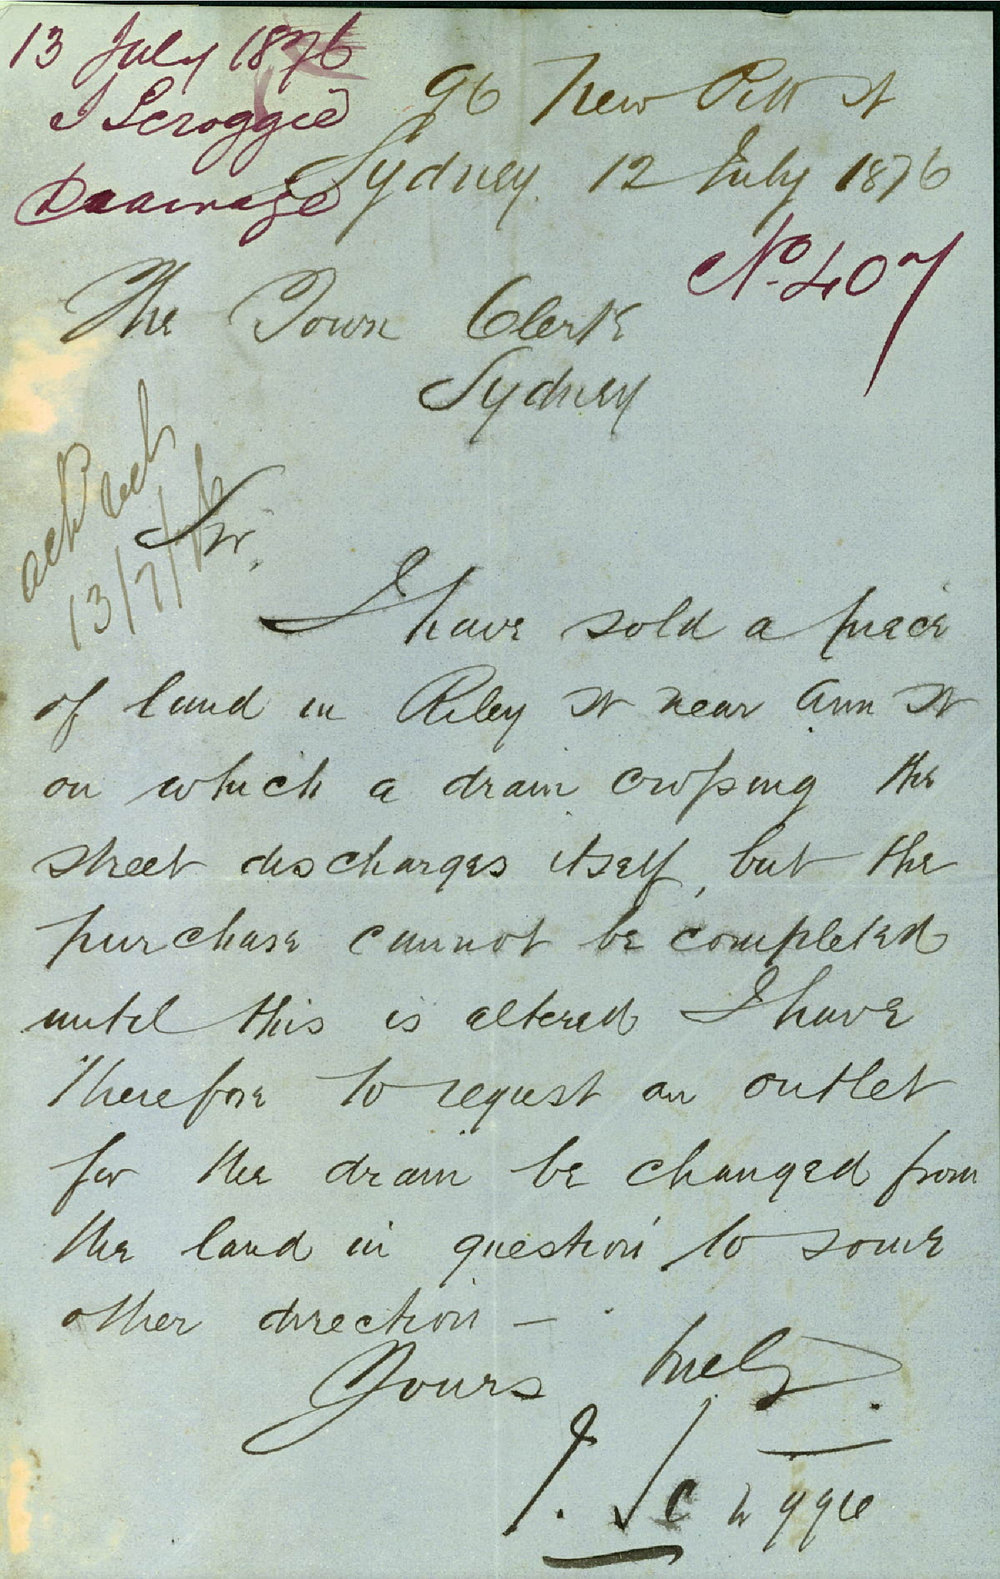 13 July 1876
J Scroggie
Drainage
96 New Pitt St
Sydney. 12 July 1876
No. 407
The Town Clerk
Sydney
ack recd
13/7/76
Sir,
I have sold a piece
of land in Riley St near Ann St
on which a drain crossing the
street discharges itself, but the
purchase cannot be completed
until this is altered I have
therefore to request an outlet
for the drain be changed from
the land in question to some
other direction —
Yours truly.
J. Scroggie